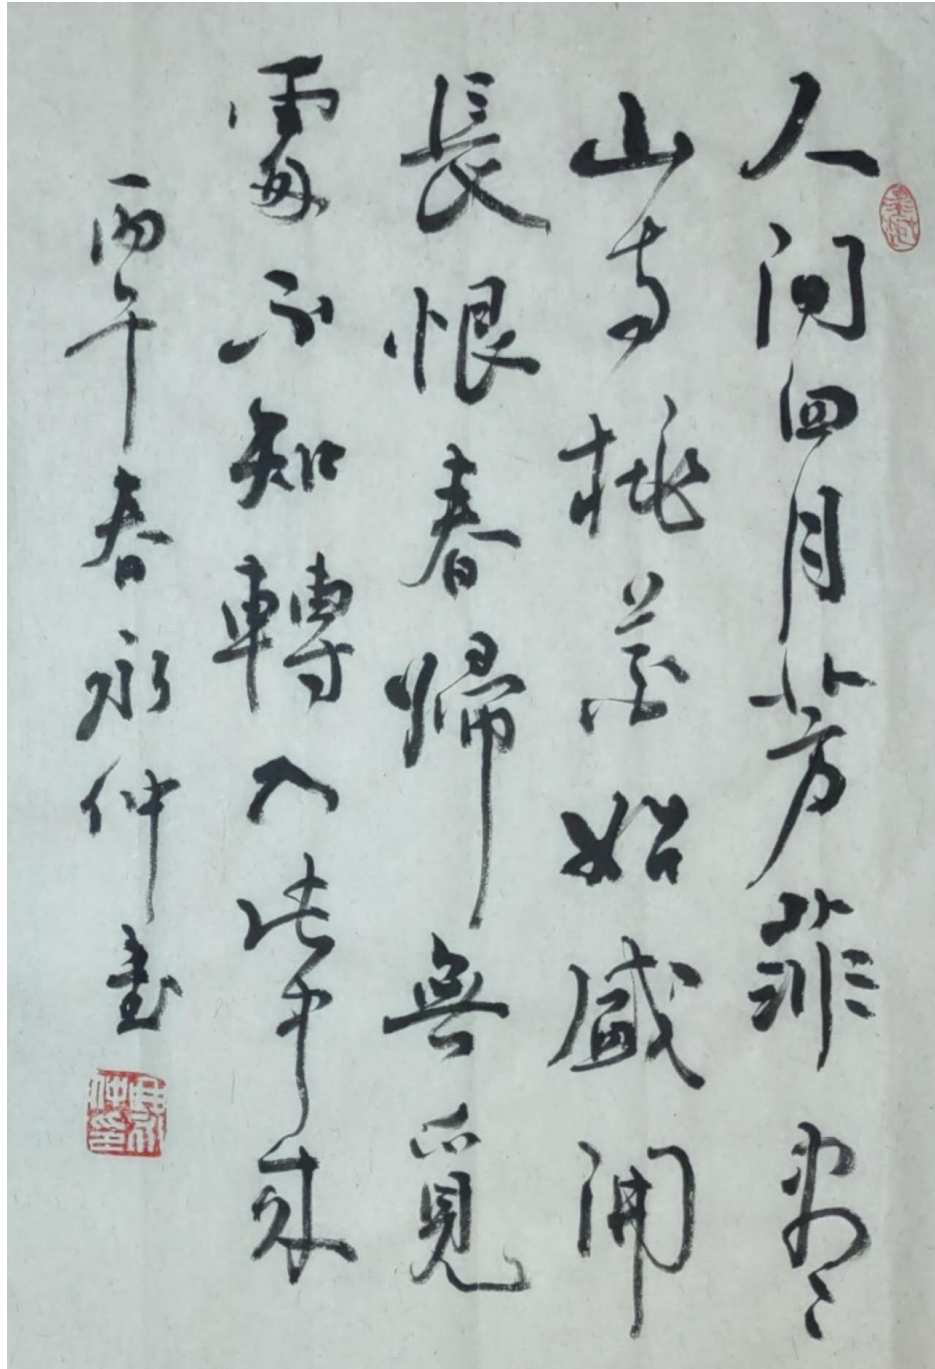 人間四月芳菲盡
山寺桃花始盛開
長恨春歸無覓
處不知轉入此中來
丙午春永仲書